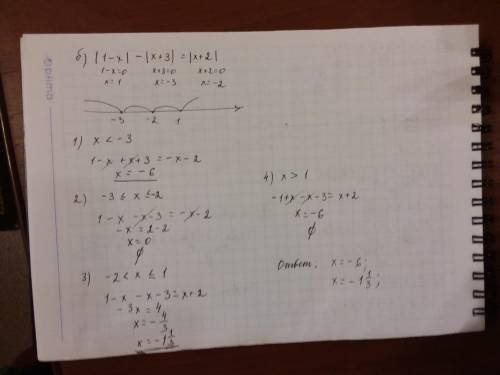 Optima
б) |1-x| - |x+3| = |x+2|
1-x=0 x+3=0 x+2=0
x=1 x=-3 x=-2
-3 -2 1
1) x < -3
1-x+x+3=-x-2
x=-6
2) -3 ≤ x ≤ -2
1-x-x-3=-x-2
-x=2-2
x=0
∅
3) -2 < x ≤ 1
1-x-x-3=x+2
-3x=4
x=-4/3
x=-1 1/3
4) x > 1
-1+x-x-3=x+2
x=-6
∅
Ответ. x=-6;
x=-1 1/3;